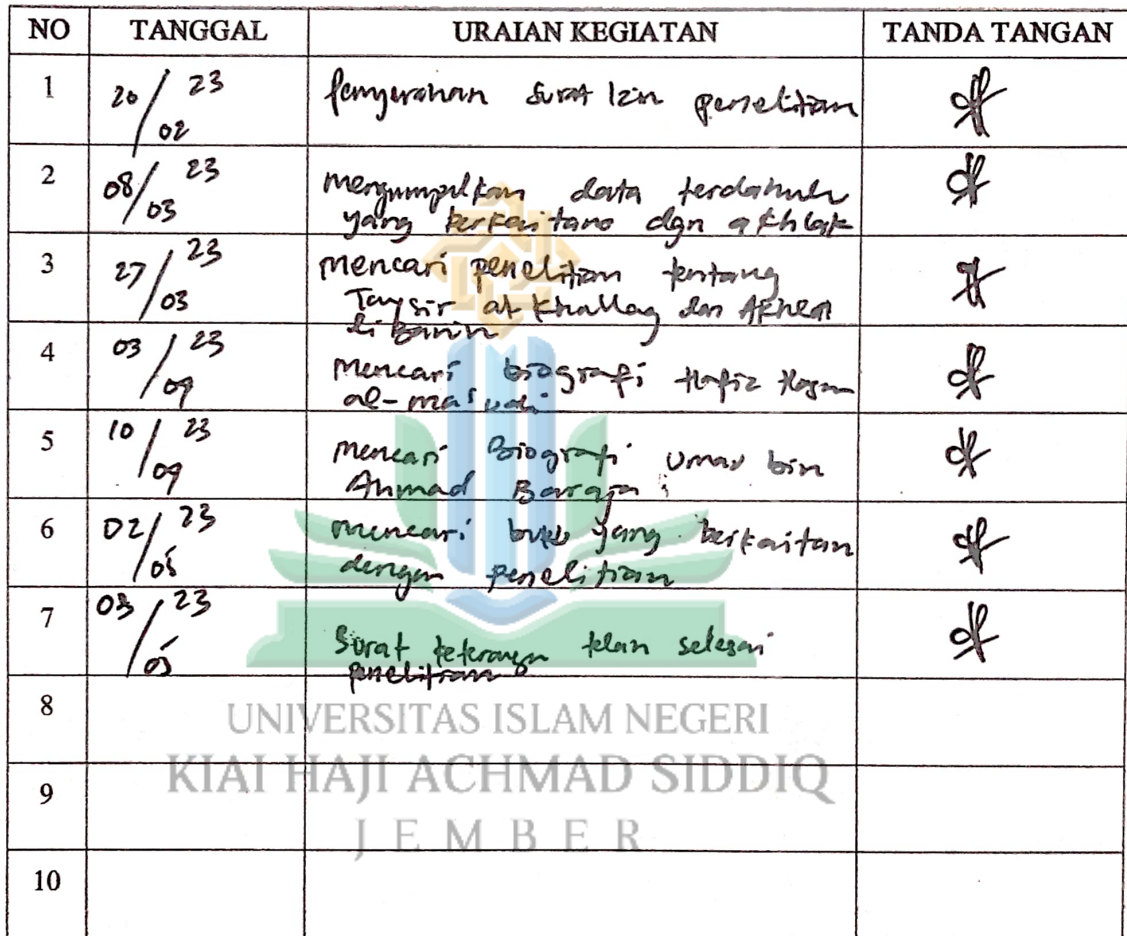 NO TANGGAL URAIAN KEGIATAN TANDA TANGAN
1 20/02 23 Penyerahan surat Izin penelitian
2 08/03 23 Mengumpulkan data terdahulu
yang berkaitano dgn akhlak
3 27/03 23 Mencari penelitian tentang
Taysir al Khallaq dan Akhlaq
li Banin
4 03/04 23 Mencari biografi Hafiz Hasan
al-mas'udi
5 10/04 23 Mencari Biografi Umar bin
Ahmad Baraja
6 02/05 23 Mencari buku yang berkaitan
dengan penelitian
7 03/05 23 Surat keterangan telah selesai
penelitian
8
9
10
UNIVERSITAS ISLAM NEGERI
KIAI HAJI ACHMAD SIDDIQ
JEMBER